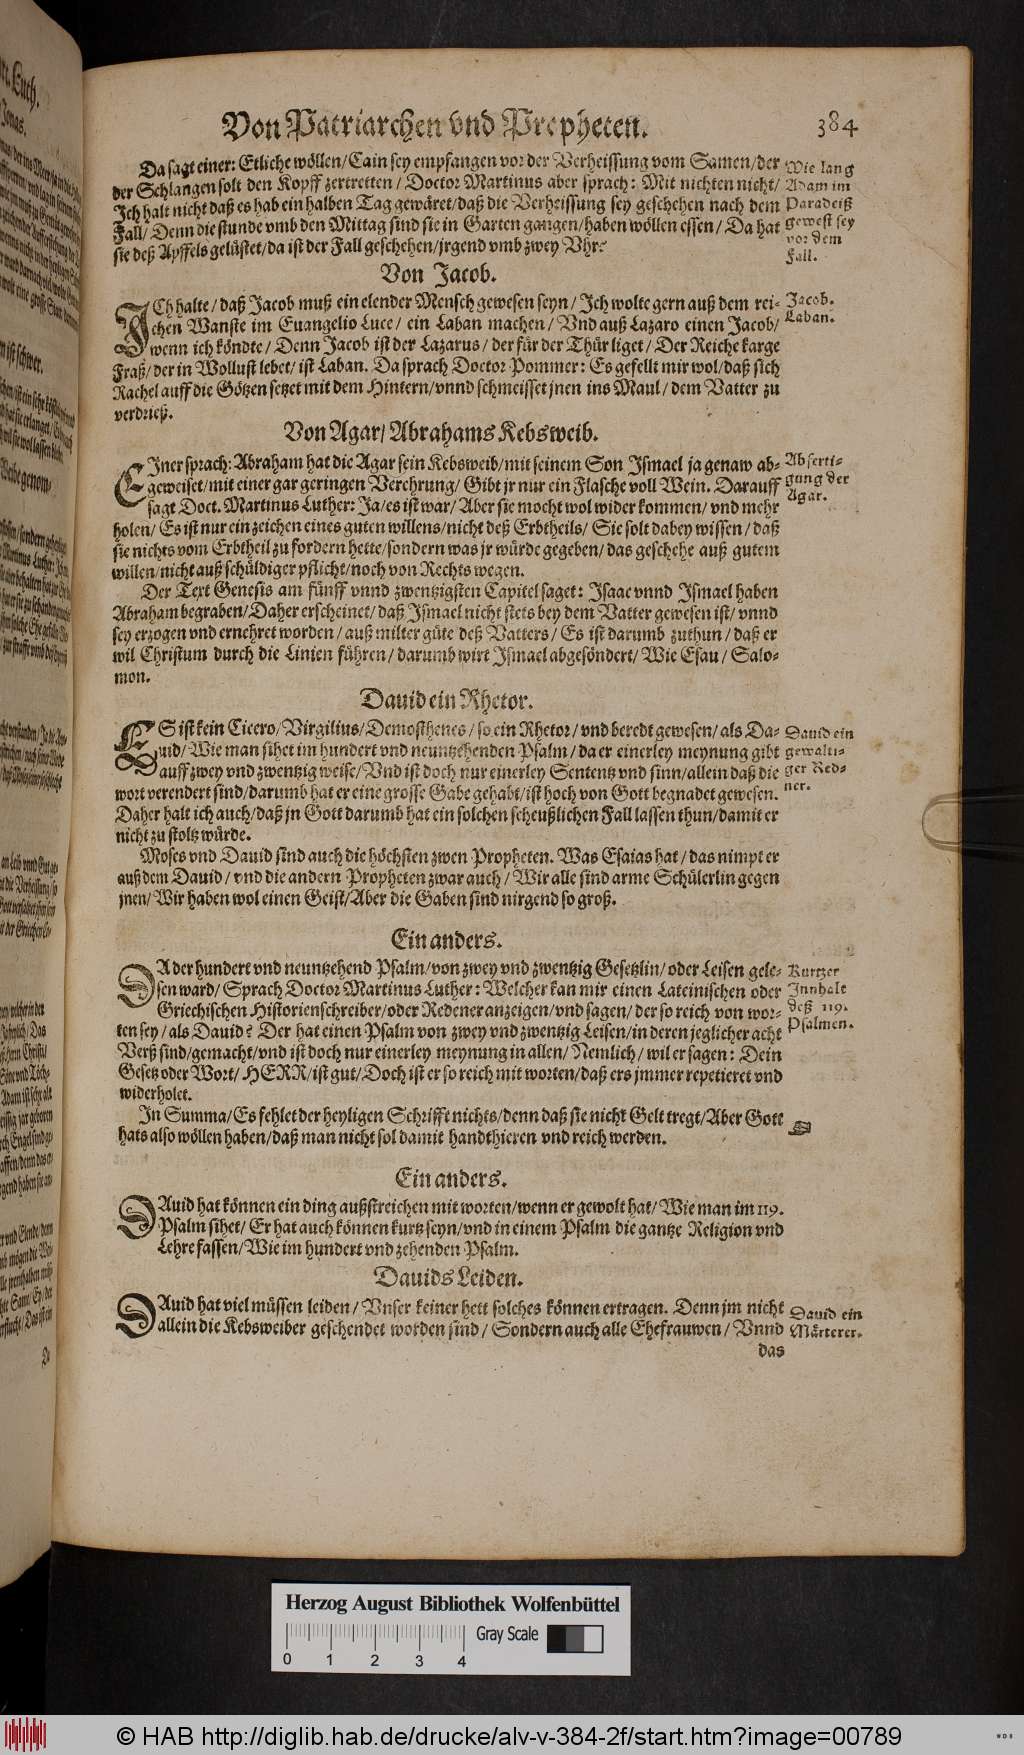 Von Patriarchen vnd Propheten. 384
Da sagt einer: Etliche wöllen/ Cain sey empfangen vor der Verheissung vom Samen/ der
der Schlangen solt den Kopff zertretten/ Doctor Martinus aber sprach: Mit nichten nicht/
Ich halt nicht daß es hab ein halben Tag gewäret/ daß die Verheissung sey geschehen nach dem
Fall/ Denn die stunde vmb den Mittag sind sie in Garten gangen/ haben wöllen essen/ Da hat
sie deß Apffels gelüstet/ da ist der Fall geschehen/ jrgend vmb zwey Vhr.
Wie lang
Adam im
Paradeiß
gewest sey
vor dem
Fall.
Von Jacob.
ICh halte/ daß Jacob muß ein elender Mensch gewesen seyn/ Ich wolte gern auß dem rei-
chen Wanste im Euangelio Luce/ ein Laban machen/ Vnd auß Lazaro einen Jacob/
wenn ich köndte/ Denn Jacob ist der Lazarus/ der für der Thür liget/ Der Reiche karge
Fraß/ der in Wollust lebet/ ist Laban. Da sprach Doctor Pommer: Es gefellt mir wol/ daß sich
Rachel auff die Götzen setzet mit dem Hintern/ vnnd schmeisset jnen ins Maul/ dem Vatter zu
verdrieß.
Jacob.
Laban.
Von Agar/ Abrahams Kebsweib.
EIner sprach: Abraham hat die Agar sein Kebsweib/ mit seinem Son Ismael ja genaw ab-
geweiset/ mit einer gar geringen Verehrung/ Gibt jr nur ein Flasche voll Wein. Darauff
sagt Doct. Martinus Luther: Ja/ es ist war/ Aber sie mocht wol wider kommen/ vnd mehr
holen/ Es ist nur ein zeichen eines guten willens/ nicht deß Erbtheils/ Sie solt dabey wissen/ daß
sie nichts vom Erbtheil zu fordern hette/ sondern was jr würde gegeben/ das geschehe auß gutem
willen/ nicht auß schüldiger pflicht/ noch von Rechts wegen.
Abferti-
gung der
Agar.
Der Text Genesis am fünff vnnd zwentzigsten Capitel saget: Isaac vnnd Ismael haben
Abraham begraben/ Daher erscheinet/ daß Ismael nicht stets bey dem Vatter gewesen ist/ vnnd
sey erzogen vnd ernehret worden/ auß milter güte deß Vatters/ Es ist darumb zuthun/ daß er
wil Christum durch die Linien führen/ darumb wirt Ismael abgesöndert/ Wie Esau/ Salo-
mon.
Dauid ein Rhetor.
ES ist kein Cicero/ Virgilius/ Demosthenes/ so ein Rhetor/ vnd beredt gewesen/ als Da-
uid/ Wie man sihet im hundert vnd neuntzehenden Psalm/ da er einerley meynung gibt
auff zwey vnd zwentzig weise/ Vnd ist doch nur einerley Sententz vnd sinn/ allein daß die
wort verendert sind/ darumb hat er eine grosse Gabe gehabt/ ist hoch von Gott begnadet gewesen.
Daher halt ich auch/ daß jn Gott darumb hat ein solchen scheußlichen Fall lassen thun/ damit er
nicht zu stoltz würde.
Dauid ein
gewalti-
ger Red-
ner.
Moses vnd Dauid sind auch die höchsten zwen Propheten. Was Esaias hat/ das nimpt er
auß dem Dauid/ vnd die andern Propheten zwar auch/ Wir alle sind arme Schülerlin gegen
jnen/ Wir haben wol einen Geist/ Aber die Gaben sind nirgend so groß.
Ein anders.
DA der hundert vnd neuntzehend Psalm/ von zwey vnd zwentzig Gesetzlin/ oder Leisen gele-
sen ward/ Sprach Doctor Martinus Luther: Welcher kan mir einen Lateinischen oder
Griechischen Historienschreiber/ oder Redener anzeigen/ vnd sagen/ der so reich von wor-
ten sey/ als Dauid? Der hat einen Psalm von zwey vnd zwentzig Leisen/ in deren jeglicher acht
Verß sind/ gemacht/ vnd ist doch nur einerley meynung in allen/ Nemlich/ wil er sagen: Dein
Gesetz oder Wort/ HERR/ ist gut/ Doch ist er so reich mit worten/ daß ers jmmer repetieret vnd
widerholet.
Kurtzer
Innhalt
deß 119.
Psalmen.
In Summa/ Es fehlet der heyligen Schrifft nichts/ denn daß sie nicht Gelt tregt/ Aber Gott
hats also wöllen haben/ daß man nicht sol damit handthieren vnd reich werden.
Ein anders.
DAuid hat können ein ding außstreichen mit worten/ wenn er gewolt hat/ Wie man im 119.
Psalm sihet/ Er hat auch können kurtz seyn/ vnd in einem Psalm die gantze Religion vnd
Lehre fassen/ Wie im hundert vnd zehenden Psalm.
Dauids Leiden.
DAuid hat viel müssen leiden/ Vnser keiner hett solches können ertragen. Denn jm nicht
allein die Kebsweiber geschendet worden sind/ Sondern auch alle Ehefrauwen/ Vnnd
das
Dauid ein
Märterer.
Herzog August Bibliothek Wolfenbüttel
Gray Scale
0 1 2 3 4
© HAB http://diglib.hab.de/drucke/alv-v-384-2f/start.htm?image=00789